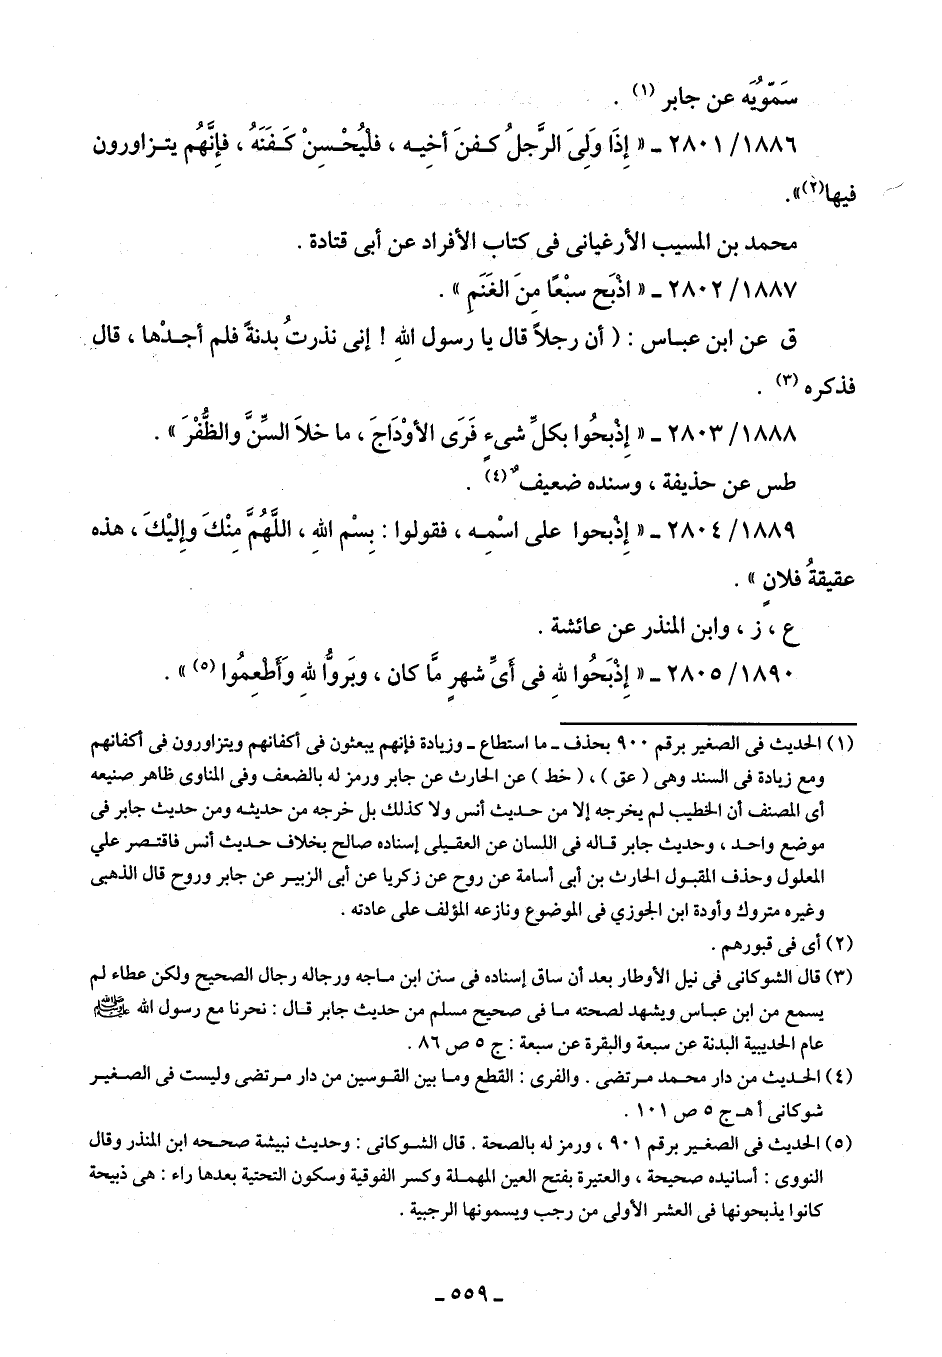 سَمّوُيَه عن جابر (١) .
٢٨٠١/١٨٨٦ ـ « إِذَا وَلِىَ الرَّجلُ كـفنَ أخيـه ، فلْيُحْسِنْ كَـفَنَهُ ، فإنَّهُم يتـزاورون
فيها(٢)».
محمد بن المسيب الأرغيانى فى كتاب الأفراد عن أبى قتادة .
٢٨٠٢/١٨٨٧ ـ « اذْبَح سبْعًا مِنَ الغَنَمِ » .
ق عن ابن عبـاس : ( أن رجلاً قال يا رسول اللهِ ! إنى نذرتُ بدنةً فلم أجـدْها ، قال
فذكره (٣) .
٢٨٠٣/١٨٨٨ ـ « إِذْبحُوا بكلِّ شىءٍ فَرَى الأوْدَاجَ ، ما خلاَ السِّنَّ والظُّفْرَ » .
طس عن حذيفة ، وسنده ضعيف ٌ(٤) .
٢٨٠٤/١٨٨٩ ـ « إِذْبحوا على اسْمِـه ، فقولوا : بِسْم اللهِ ، اللَّهُمَّ مِنْكَ وإِليْكَ ، هذه
عقيقةُ فلانٍ » .
ع ، ز ، وابن المنذر عن عائشة .
٢٨٠٥/١٨٩٠ ـ « إِذْبَحُوا للهِ فى أىِّ شهرٍ مَّا كان ، وبَروُّا للهِ وَأَطْعِمُوا (٥) » .
(١) الحديث فى الصغير برقم ٩٠٠ بحذف ـ ما استطاع ـ وزيادة فإنهم يبعثون فى أكفانهم ويتزاورون فى أكفانهم
ومع زيادة فى السند وهى ( عق ) ، ( خط ) عن الحارث عن جابر ورمز له بالضعف وفى المناوى ظاهر صنيعه
أى المصنف أن الخطيب لم يخرجه إلا من حـديث أنس ولا كذلك بل خرجه من حديثـه ومن حديث جابر فى
موضع واحـد ، وحديث جابر قاله فى اللسان عن العقيلى إسناده صالح بخلاف حـديث أنس فاقتـصر علي
المعلول وحذف المقبول الحارث بن أبى أسامة عن روح عن زكريا عن أبى الزبير عن جابر وروح قال الذهبى
وغيره متروك وأودة ابن الجوزي فى الموضوع ونازعه المؤلف على عادته .
(٢) أى فى قبورهم .
(٣) قال الشوكانى فى نيل الأوطار بعد أن ساق إسناده فى سنن ابن مـاجه ورجاله رجال الصحيح ولكن عطاء لم
يسمع من ابن عبـاس ويشهد لصحته مـا فى صحيح مسلم من حديث جابر قـال : نحرنا مع رسول الله ﷺ
عام الحديبية البدنة عن سبعة والبقرة عن سبعة : ج ٥ ص ٨٦ .
(٤) الحـديث من دار محمـد مرتضى . والفرى : القطع وما بين القـوسين من دار مـرتضى وليست فى الصـغيـر
شوكانى أهـ ج ٥ ص ١٠١ .
(٥) الحديث فى الصغـير برقم ٩٠١ ، ورمز له بالصحة . قال الشـوكانى : وحديث نبيشة صحـحه ابن المنذر وقال
النووى : أسانيده صحيحة ، والعتيرة بفتح العين المهملة وكسر الفوقية وسكون التحتية بعدها راء : هى ذبيحة
كانوا يذبحونها فى العشر الأولى من رجب ويسمونها الرجبية .
ـ ٥٥٩ ـ